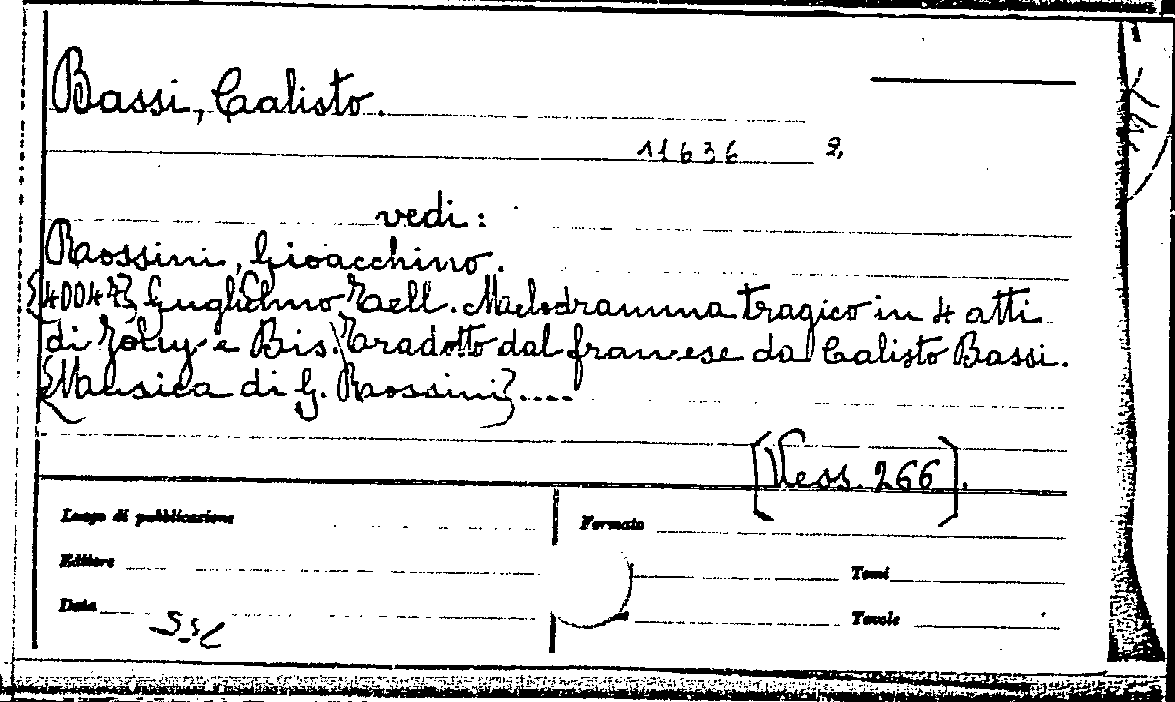 Bassi, Calisto.
11636
vedi:
Rossini, Gioacchino.
{40047} Guglielmo Tell. Melodramma tragico in 4 atti
di Joüy e Bis. Tradotto dal francese da Calisto Bassi.
{Musica di G. Rossini}....
[Vess. 266].
Luogo di pubblicazione
Formato
Editore
Tomi
Data
Tavole